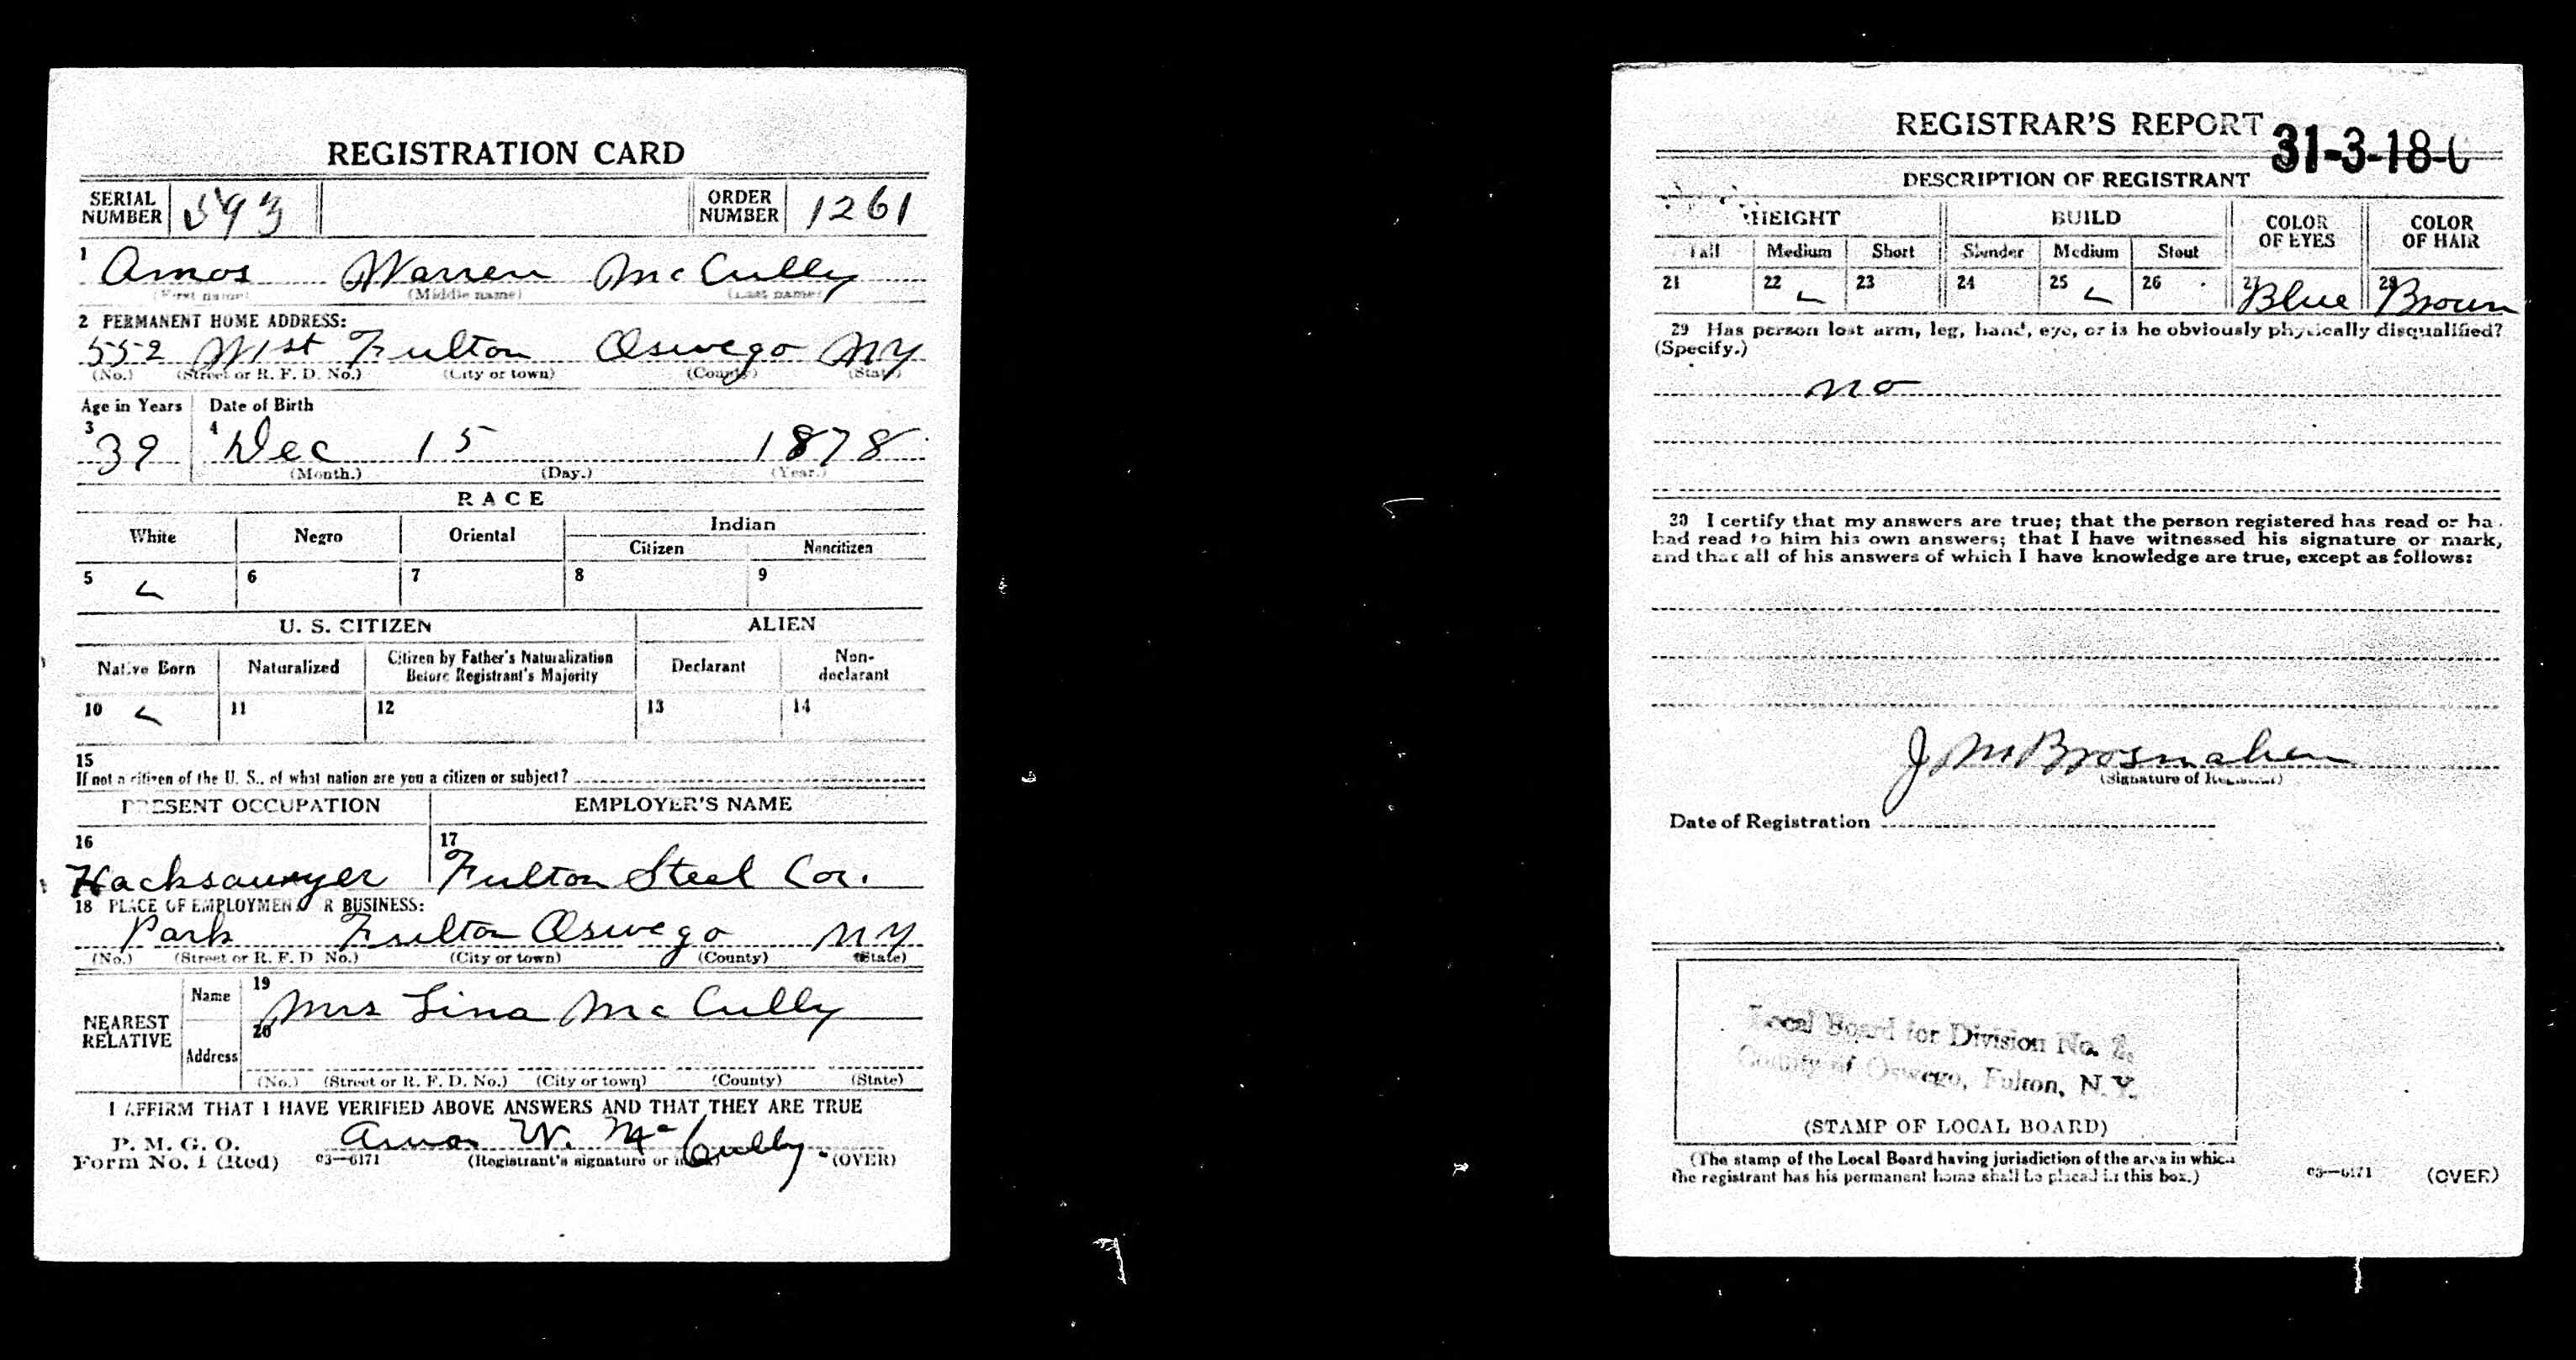 REGISTRATION CARD
SERIAL NUMBER 593 ORDER NUMBER 1261
1 Amos Warren McCully
(First name) (Middle name) (Last name)
2 PERMANENT HOME ADDRESS:
552 W 1st Fulton Oswego NY
(No.) (Street or R. F. D. No.) (City or town) (County) (State)
Age in Years Date of Birth
3 39 4 Dec 15 1878
(Month.) (Day.) (Year.)
RACE
White Negro Oriental Indian
Citizen Noncitizen
5 6 7 8 9
U. S. CITIZEN ALIEN
Native Born Naturalized Citizen by Father's Naturalization Before Registrant's Majority Declarant Non-declarant
10 11 12 13 14
15
If not a citizen of the U. S., of what nation are you a citizen or subject?
PRESENT OCCUPATION EMPLOYER'S NAME
16 17
Hacksawyer Fulton Steel Cor.
18 PLACE OF EMPLOYMENT OR BUSINESS:
Park Fulton Oswego NY
(No.) (Street or R. F. D. No.) (City or town) (County) (State)
NEAREST RELATIVE
Name 19 Mrs Lina McCully
Address 20
(No.) (Street or R. F. D. No.) (City or town) (County) (State)
I AFFIRM THAT I HAVE VERIFIED ABOVE ANSWERS AND THAT THEY ARE TRUE
P. M. G. O.
Form No. 1 (Red) 03—6171 Amos W. McCully (Registrant's signature or mark) (OVER)
REGISTRAR'S REPORT
31-3-18-
DESCRIPTION OF REGISTRANT
HEIGHT BUILD COLOR OF EYES COLOR OF HAIR
Tall Medium Short Slender Medium Stout
21 22 23 24 25 26 27 Blue 28 Brown
29 Has person lost arm, leg, hand, eye, or is he obviously physically disqualified?
(Specify.)
no
30 I certify that my answers are true; that the person registered has read or has
had read to him his own answers; that I have witnessed his signature or mark,
and that all of his answers of which I have knowledge are true, except as follows:
J M Brosnahen
(Signature of Registrar)
Date of Registration
Local Board for Division No. 2,
County of Oswego, Fulton, N.Y.
(STAMP OF LOCAL BOARD)
(The stamp of the Local Board having jurisdiction of the area in which
the registrant has his permanent home shall be placed in this box.)
03—6171 (OVER)